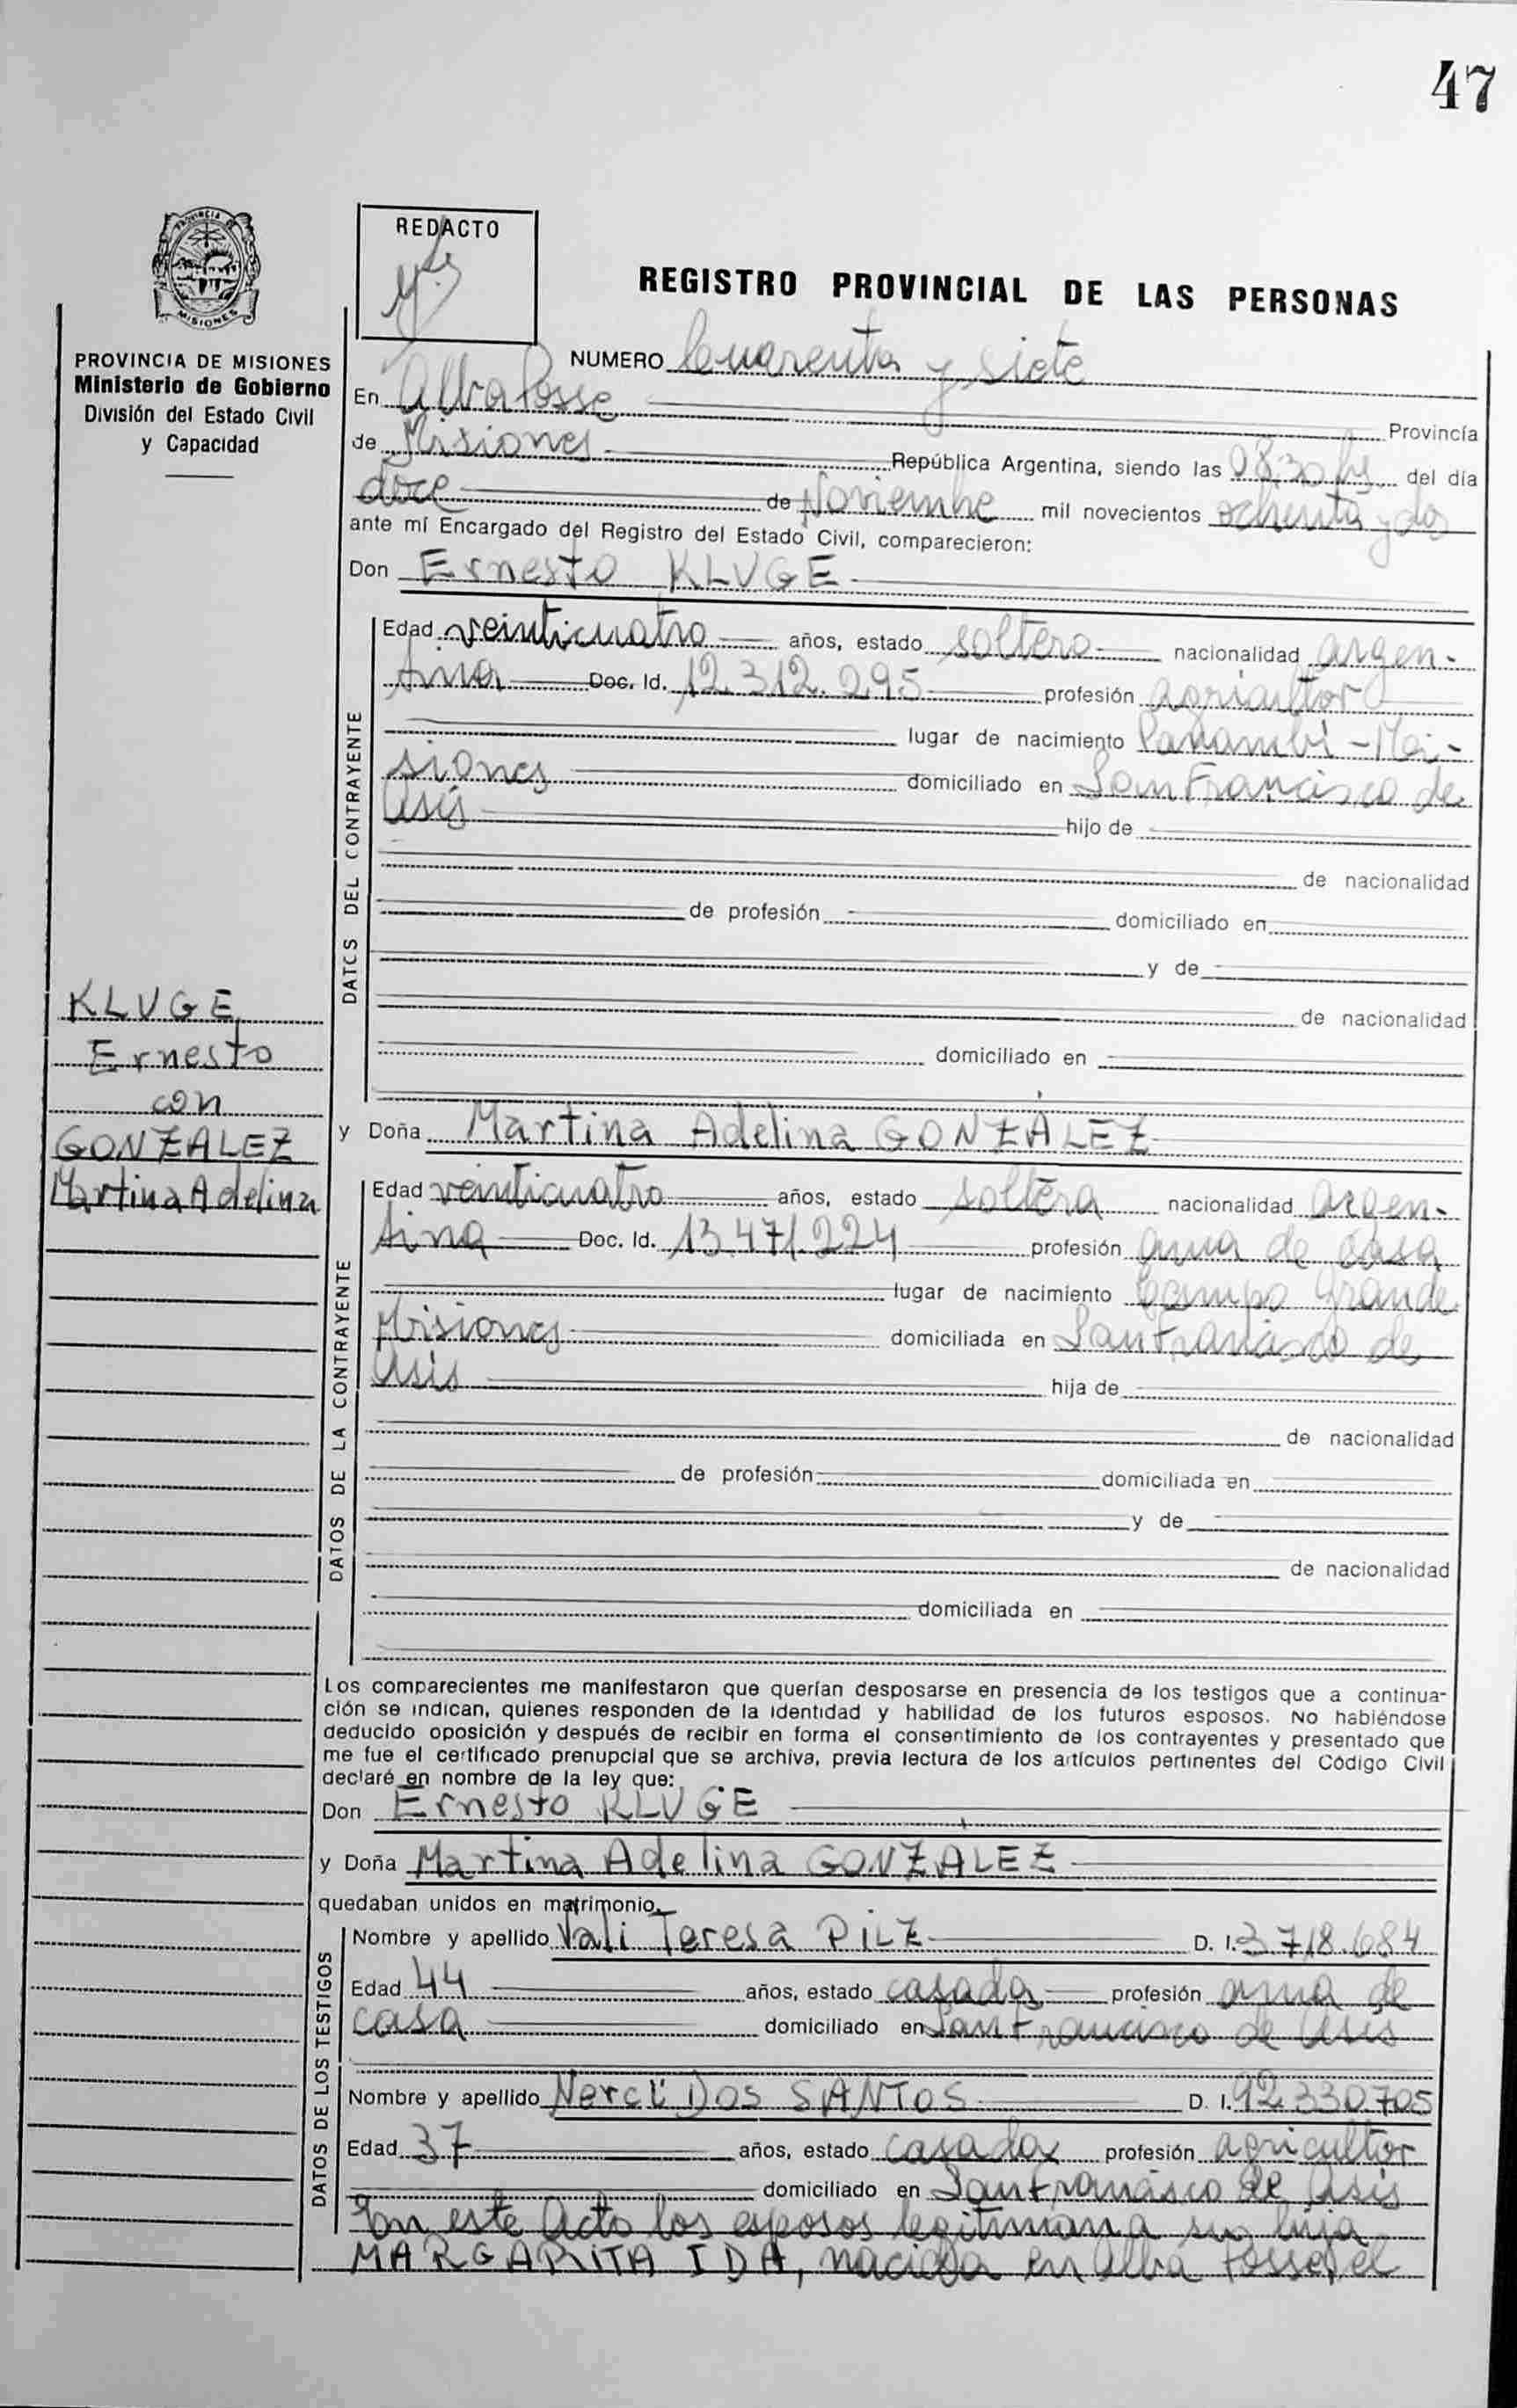 47
PROVINCIA DE
MISIONES
REDACTO
REGISTRO PROVINCIAL DE LAS PERSONAS
PROVINCIA DE MISIONES
Ministerio de Gobierno
División del Estado Civil
y Capacidad
NUMERO Cuarenta y siete
En Alba Posse Provincia
de Misiones República Argentina, siendo las 08,30 hs del día
doce de Noviembre mil novecientos ochenta y dos
ante mí Encargado del Registro del Estado Civil, comparecieron:
Don Ernesto KLUGE
DATOS DEL CONTRAYENTE
Edad veinticuatro años, estado soltero nacionalidad argen-
tina Doc. Id. 12.312.295 profesión agricultor
lugar de nacimiento Panambí - Mi-
siones domiciliado en San Francisco de
Asís hijo de
de nacionalidad
de profesión domiciliado en
y de
de nacionalidad
domiciliado en
KLUGE
Ernesto
con
GONZALEZ
Martina Adelina
y Doña Martina Adelina GONZÁLEZ
DATOS DE LA CONTRAYENTE
Edad veinticuatro años, estado soltera nacionalidad argen-
tina Doc. Id. 13.471.224 profesión ama de casa
lugar de nacimiento Campo Grande
Misiones domiciliada en San Francisco de
Asis hija de
de nacionalidad
de profesión domiciliada en
y de
de nacionalidad
domiciliada en
Los comparecientes me manifestaron que querían desposarse en presencia de los testigos que a continua-
ción se indican, quienes responden de la identidad y habilidad de los futuros esposos. No habiéndose
deducido oposición y después de recibir en forma el consentimiento de los contrayentes y presentado que
me fue el certificado prenupcial que se archiva, previa lectura de los artículos pertinentes del Código Civil
declaré en nombre de la ley que:
Don Ernesto KLUGE
y Doña Martina Adelina GONZALEZ
quedaban unidos en matrimonio.
DATOS DE LOS TESTIGOS
Nombre y apellido Vali Teresa PILZ D. I. 3.718.684
Edad 44 años, estado casada profesión ama de
casa domiciliado en San Francisco de Asis
Nombre y apellido Nercí DOS SANTOS D. I. 92.330.705
Edad 37 años, estado casado profesión agricultor
domiciliado en San Francisco de Asis
En este Acto los esposos legitiman a su hija
MARGARITA IDA, nacida en Alba Posse, el